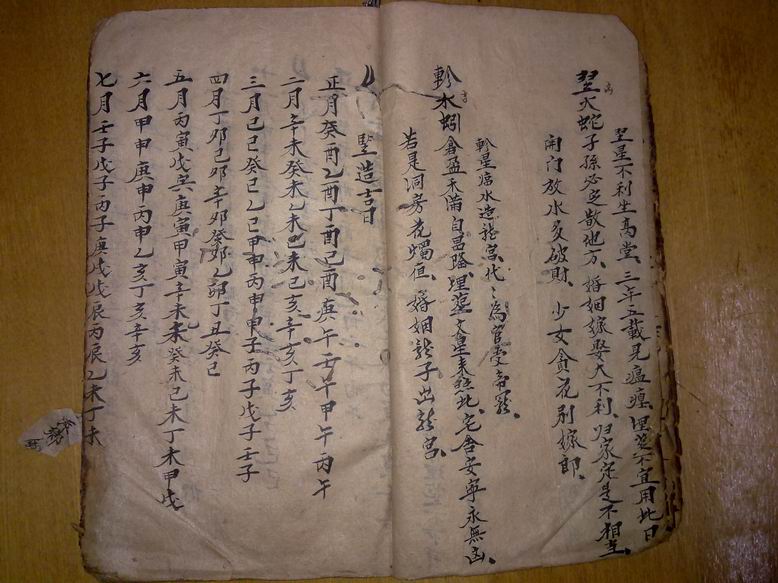 翌星不利坐高堂、三年五載見瘟𤺥、埋塟不宜用此日
翌火蛇 凶 子孫必定散他方、婚姻嫁娶大不利、归家定是不相宜、
開门放水多破財、少女貪花別嫁郎、
軫星临水造龍宮、代々為官受帝寵、
軫水蚓 吉 倉盈禾滿自昌隆、埋塟文星来照此、宅舍安寧永無凶、
若是洞房花燭但、婚姻龍子出龍宮、
豎造吉日
正月癸酉乙酉丁酉己酉庚午壬午甲午丙午
二月辛未癸未乙未己未己亥辛亥丁亥
三月己巳癸巳乙巳甲申丙申甲子丙子戊子壬子
四月丁卯己卯辛卯癸卯乙卯丁丑癸巳
五月丙寅戊寅庚寅甲寅辛未癸未己未丁未甲戌
六月甲申庚申丙申乙亥丁亥辛亥
七月壬子戊子丙子庚戌戊辰丙辰乙未丁未